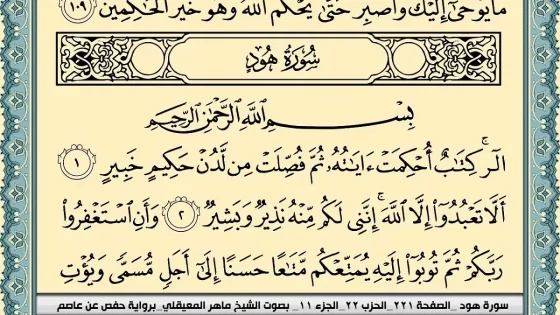 مَا يُوحَىٰٓ إِلَيْكَ وَٱصْبِرْ حَتَّىٰ يَحْكُمَ ٱللَّهُ وَهُوَ خَيْرُ ٱلْحَٰكِمِينَ ١٠٩
سُورَةُ هُودٍ
بِسْمِ ٱللَّهِ ٱلرَّحْمَٰنِ ٱلرَّحِيمِ
الٓر ۚ كِتَٰبٌ أُحْكِمَتْ ءَايَٰتُهُۥ ثُمَّ فُصِّلَتْ مِن لَّدُنْ حَكِيمٍ خَبِيرٍ ١
أَلَّا تَعْبُدُوٓا۟ إِلَّا ٱللَّهَ ۚ إِنَّنِى لَكُم مِّنْهُ نَذِيرٌ وَبَشِيرٌ ٢ وَأَنِ ٱسْتَغْفِرُوا۟
رَبَّكُمْ ثُمَّ تُوبُوٓا۟ إِلَيْهِ يُمَتِّعْكُم مَّتَٰعًا حَسَنًا إِلَىٰٓ أَجَلٍ مُّسَمًّى وَيُؤْتِ
سورة هود _ الصفحة ٢٢١_ الحزب ٢٢_ الجزء ١١ _ بصوت الشيخ ماهر المعيقلي_ برواية حفص عن عاصم